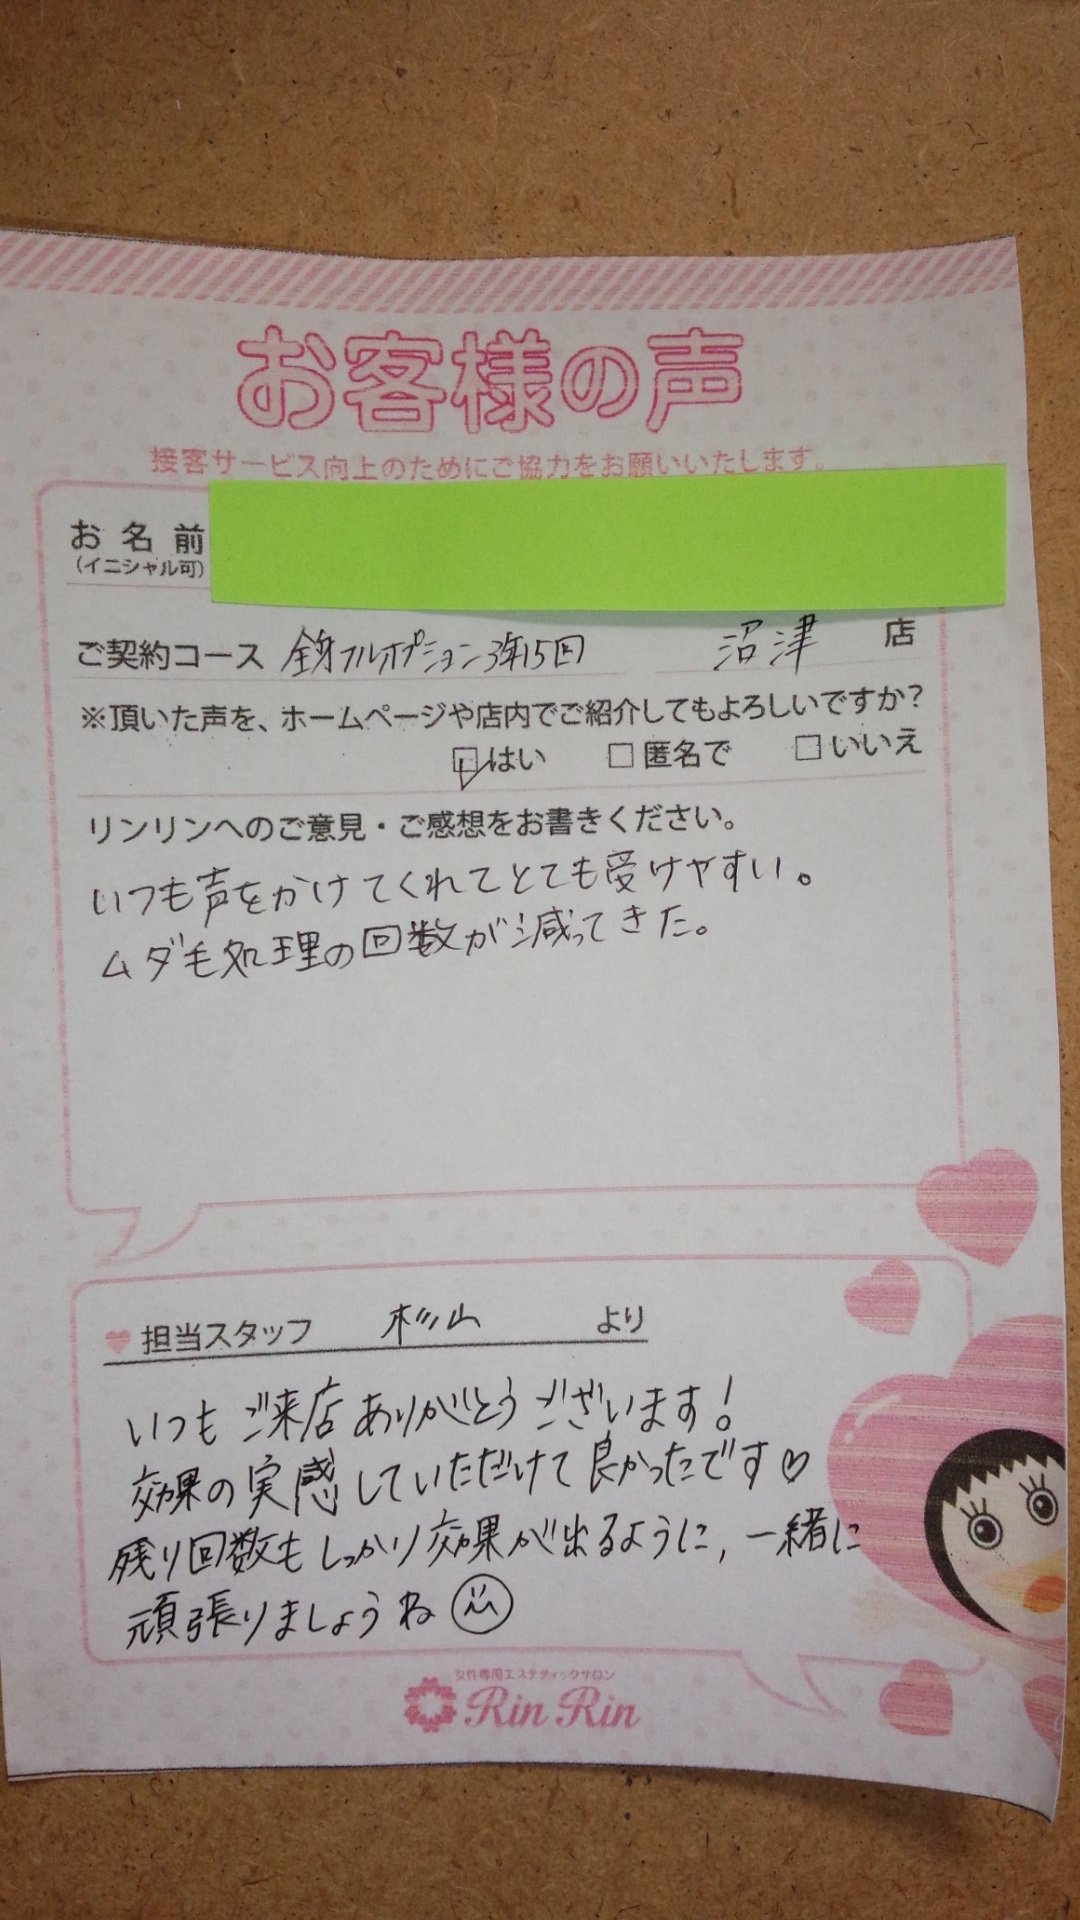 お客様の声
接客サービス向上のためにご協力をお願いいたします。
お名前
(イニシャル可)
ご契約コース 全身フルオプション3年15回 沼津 店
※頂いた声を、ホームページや店内でご紹介してもよろしいですか?
□はい □匿名で □いいえ
リンリンへのご意見・ご感想をお書きください。
いつも声をかけてくれてとても受けやすい。
ムダ毛処理の回数が減ってきた。
♥担当スタッフ 杉山 より
いつもご来店ありがとうございます!
効果の実感していただけて良かったです♡
残り回数もしっかり効果が出るように、一緒に
頑張りましょうね
女性専用エステティックサロン
Rin Rin